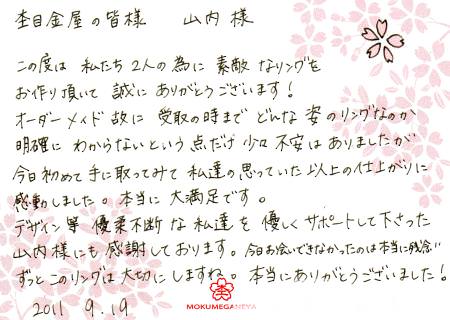 杢目金屋の皆様　山内様
この度は 私たち2人の為に 素敵なリングを
お作り頂いて 誠にありがとうございます！
オーダーメイド故に 受取の時まで どんな姿のリングなのか
明確に わからないという点だけ 少々不安はありましたが
今日初めて手に取ってみて 私達の思っていた以上の仕上がりに
感動しました。本当に 大満足です。
デザイン等 優柔不断な私達を優しくサポートして下さった
山内様にも感謝しております。今日お会いできなかったのは本当に残念
ずっとこのリングは大切にしますね。本当にありがとうございました！
2011 9.19
MOKUMEGANEYA